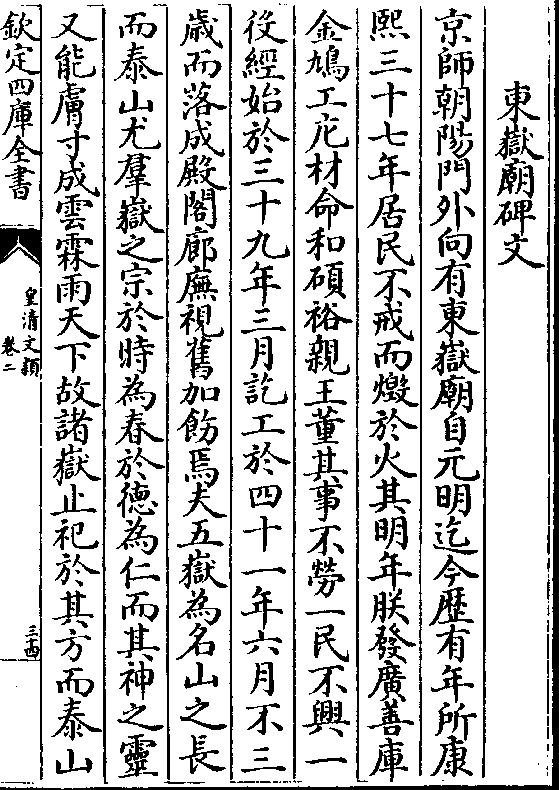 東嶽廟碑文
京師朝陽門外向有東嶽廟自元明迄今歷有年所康
熙三十七年居民不戒而燬於火其明年朕發廣善庫
金鳩工庀材命和碩裕親王董其事不勞一民不興一
役經始於三十九年三月訖工於四十一年六月不三
歲而落成殿閣廊廡視舊加飭焉夫五嶽為名山之長
而泰山尤羣嶽之宗於時為春於德為仁而其神之靈
又能膚寸成雲霖雨天下故諸嶽止祀於其方而泰山
欽定四庫全書
皇清文穎
卷二
三十四